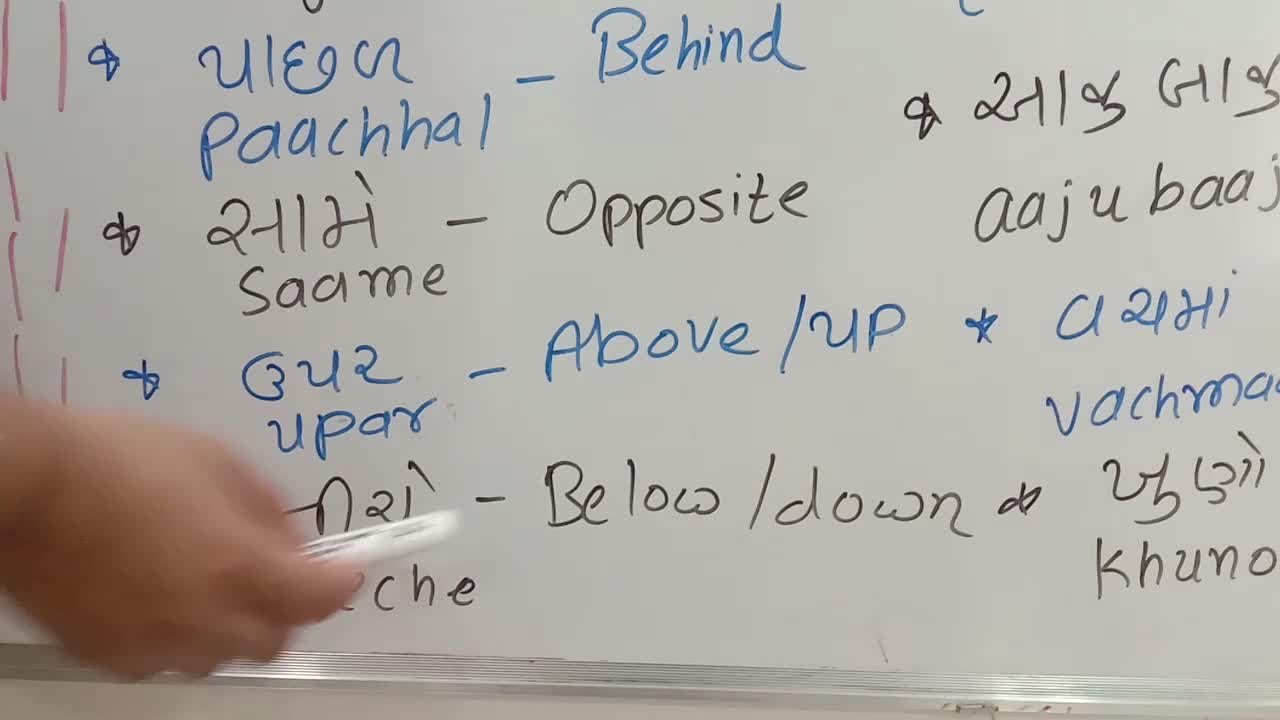 પાછળ - Behind
Paachhal
સામે - Opposite
Saame
ઉપર - Above/up
upar
નીચે - Below/down
આજુ બાજુ
aaju
વચમાં
ખુણો
khuno